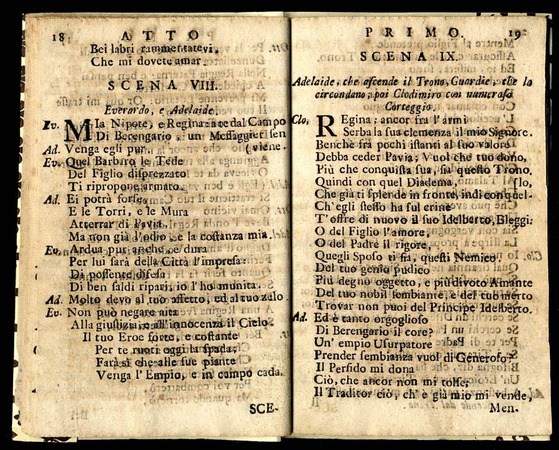 18 ATTO
Bei labri rammentatevi,
Che mi dovete amar.
SCENA VIII.
Everardo, e Adelaide.
Ev. MIa Nipote, e Regina: ate dal Campo
Di Berengario, un Messaggier sen
Ad. Venga egli pur. (viene.
Ev. Quel Barbaro le Tede
Del Figlio disprezzato
Ti ripropone armato.
Ad. Ei potrà forse
E le Torri, e le Mura
Atterrar di Pavia,
Ma non già l'odio, e la costanza mia.
Ev. Ardua pur anche, e dura
Per lui sarà della Città l'impresa:
Di possente difesa
Di ben saldi ripari, io l'ho munita.
Ad. Molto devo al tuo affetto, ed al tuo zalo
Ev. Non può negare aita
Alla giustizia, e all'innocenza il Cielo
Il tuo Eroe forte, e costante
Per te ruoti oggi la spada;
Farà sì che alle tue piante
Venga l'Empio, e in campo cada.
SCE-
PRIMO. 19
SCENA IX.
Adelaide, che ascende il Trono, Guardie, che la
circondano; poi Clodimiro con numeroso
Corteggio.
Clo, REgina: ancor fra l'armi
Serba la sua clemenza il mio Signore.
Benchè fra pochi istanti al suo valore
Debba ceder Pavia; Vuol che tuo dono,
Più che conquista sua, sia questo Trono.
Quindi con quel Diadema, (lo,
Che già ti splende in fronte, indi con quel-
Ch'egli stesso ha sul crine
T'offre di nuovo il suo Idelberto, Eleggi.
O del Figlio l'amore,
O del Padre il rigore,
Quegli Sposo ti sia, questi Nemico
Del tuo genio pudico
Più degno oggetto, e più divoto Amante
Del tuo nobil sembiante, e del tuo merto
Trovar non puoi del Principe Idelberto.
Ad. Ed è tanto orgoglioso
Di Berengario il core?
Un'empio Usurpatore
Prender sembianza vuol di Generoso?
Il Perfido mi dona
Ciò, che ancor non mi tolse;
Il Traditor ciò, ch'è già mio mi vende,
Men.